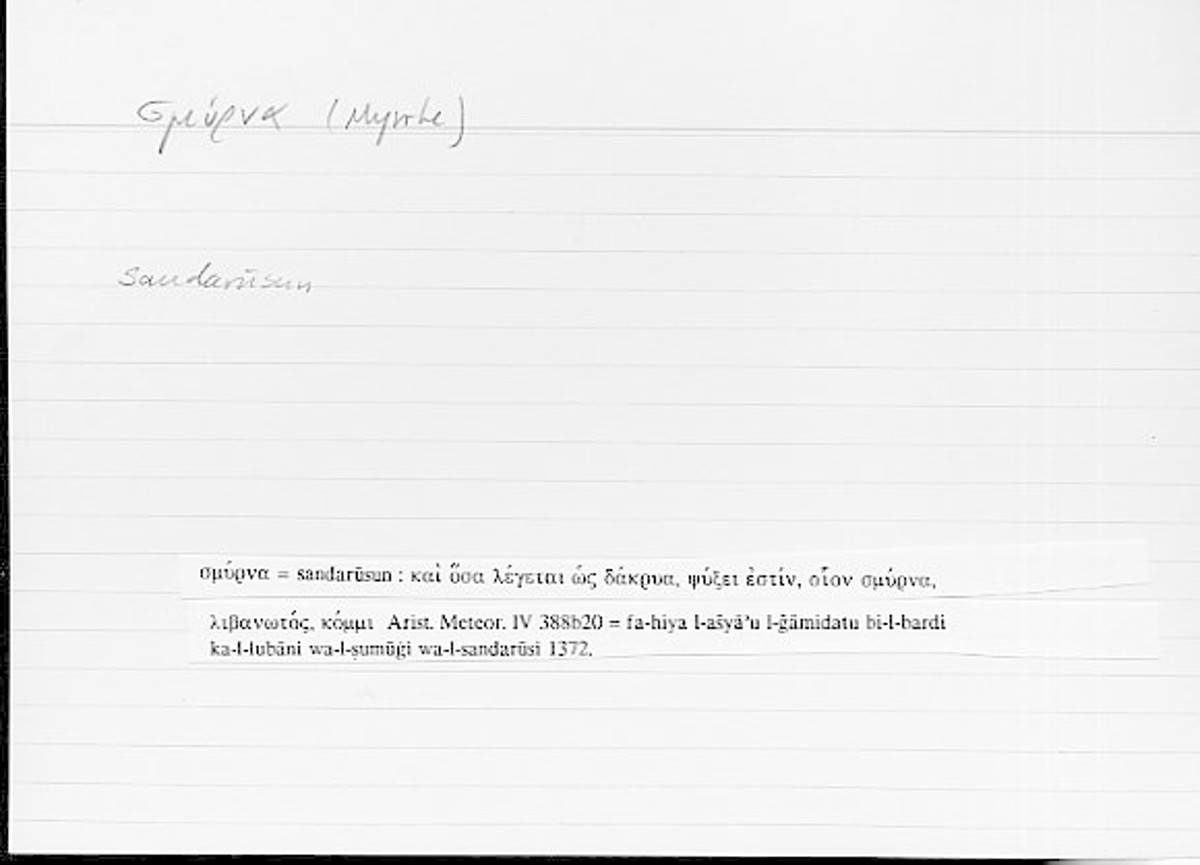 σμύρνα (Myrrhe)
sandarūsun
σμύρνα = sandarūsun : καὶ ὅσα λέγεται ὡς δάκρυα, ψύξει ἐστίν, οἷον σμύρνα,
λιβανωτός, κόμμι Arist. Meteor. IV 388b20 = fa-hiya l-ašyā’u l-ǧāmidatu bi-l-bardi
ka-l-lubāni wa-l-ṣumūġi wa-l-sandarūsi 1372.